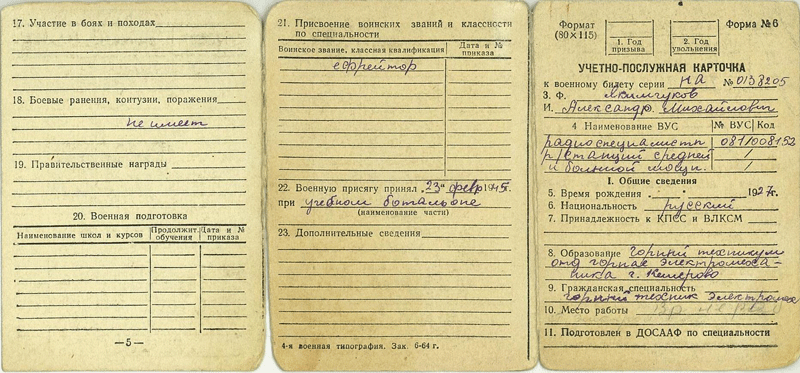 17. Участие в боях и походах
18. Боевые ранения, контузии, поражения
не имеет
19. Правительственные награды
20. Военная подготовка
Наименование школ и курсов
Продолжит. обучения
Дата и № приказа
—5—
21. Присвоение воинских званий и классности
по специальности
Воинское звание, классная квалификация
Дата и № приказа
ефрейтор
22. Военную присягу принял „23" февр 1945г.
при учебном батальоне
(наименование части)
23. Дополнительные сведения
4-я военная типография. Зак. 6-64 г.
Формат
(80×115)
1. Год призыва
2. Год увольнения
Форма № 6
УЧЕТНО-ПОСЛУЖНАЯ КАРТОЧКА
к военному билету серии НА № 0138205
3. Ф. Якимчуков
И. Александр Михайлович
4 Наименование ВУС
№ ВУС
Код
радиоспециалисты
р/станций средней
и большой мощн.
I. Общие сведения
5. Время рождения 1927г.
6. Национальность русский
7. Принадлежность к КПСС и ВЛКСМ
8. Образование горный техникум
горная электромеха-
ника г. Кемерово
9. Гражданская специальность
горный техник электромех
10. Место работы
11. Подготовлен в ДОСААФ по специальности